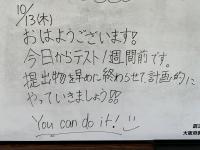 10/13(木)
おはようございます!
今日からテスト1週間前です。
提出物を早めに終わらせて、計画的に
やっていきましょう!!
You can do it!